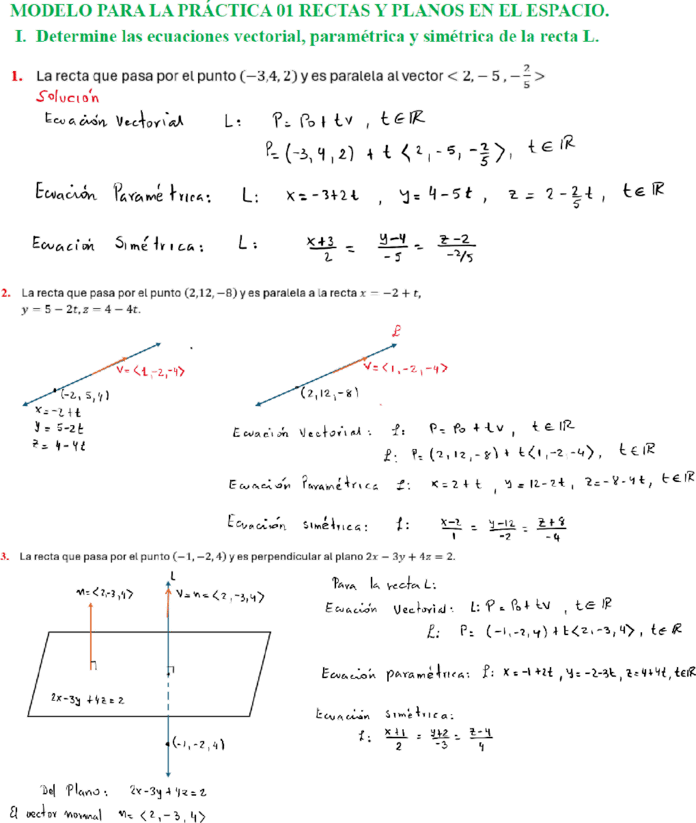 MODELO PARA LA PRÁCTICA 01 RECTAS Y PLANOS EN EL ESPACIO.
I. Determine las ecuaciones vectorial, paramétrica y simétrica de la recta L.
1. La recta que pasa por el punto (−3,4, 2) y es paralela al vector < 2, − 5 , −2/5 >
Solución
Ecuación Vectorial L: P = P0 + tv , t ∈ ℝ
P = (-3, 4, 2) + t ⟨2, -5, -2/5⟩, t ∈ ℝ
Ecuación Paramétrica: L: x = -3+2t , y = 4-5t , z = 2 - 2/5 t , t ∈ ℝ
Ecuación Simétrica: L: x+3/2 = y-4/-5 = z-2/-2/5
2. La recta que pasa por el punto (2,12, −8) y es paralela a la recta x = −2 + t,
y = 5 − 2t, z = 4 − 4t.
L
V = ⟨1, -2, -4⟩
V = ⟨1, -2, -4⟩
(-2, 5, 4)
(2, 12, -8)
x = -2+t
y = 5-2t
z = 4-4t
Ecuación Vectorial: L: P = P0 + tv , t ∈ ℝ
L: P = (2, 12, -8) + t⟨1, -2, -4⟩, t ∈ ℝ
Ecuación Paramétrica L: x = 2+t , y = 12-2t , z = -8-4t, t ∈ ℝ
Ecuación simétrica: L: x-2/1 = y-12/-2 = z+8/-4
3. La recta que pasa por el punto (−1, −2, 4) y es perpendicular al plano 2x − 3y + 4z = 2.
L
n = ⟨2, -3, 4⟩
V = n = ⟨2, -3, 4⟩
2x-3y+4z = 2
(-1, -2, 4)
Del Plano: 2x-3y+4z = 2
El vector normal n = ⟨2, -3, 4⟩
Para la recta L:
Ecuación Vectorial: L: P = P0 + tv , t ∈ ℝ
L: P = (-1, -2, 4) + t⟨2, -3, 4⟩, t ∈ ℝ
Ecuación paramétrica: L: x = -1+2t , y = -2-3t, z = 4+4t, t ∈ ℝ
Ecuación simétrica:
L: x+1/2 = y+2/-3 = z-4/4